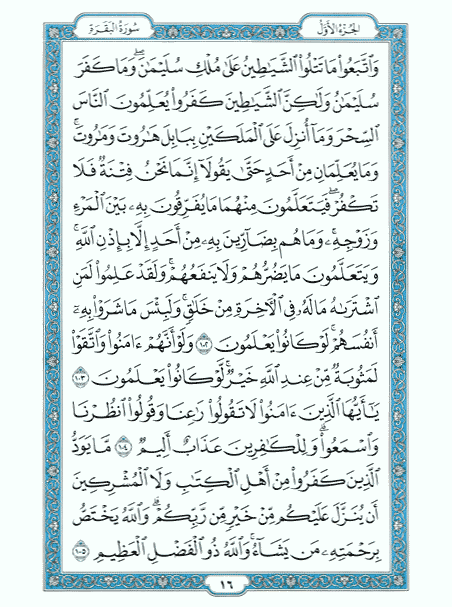 الجزء الأول
سورة البقرة
وَاتَّبَعُوا۟ مَا تَتْلُوا۟ الشَّيَاطِينُ عَلَىٰ مُلْكِ سُلَيْمَانَ ۖ وَمَا كَفَرَ
سُلَيْمَانُ وَلَٰكِنَّ الشَّيَاطِينَ كَفَرُوا۟ يُعَلِّمُونَ النَّاسَ
السِّحْرَ وَمَا أُنزِلَ عَلَى الْمَلَكَيْنِ بِبَابِلَ هَارُوتَ وَمَارُوتَ ۚ
وَمَا يُعَلِّمَانِ مِنْ أَحَدٍ حَتَّىٰ يَقُولَا إِنَّمَا نَحْنُ فِتْنَةٌ فَلَا
تَكْفُرْ ۖ فَيَتَعَلَّمُونَ مِنْهُمَا مَا يُفَرِّقُونَ بِهِ بَيْنَ الْمَرْءِ
وَزَوْجِهِ ۚ وَمَا هُم بِضَارِّينَ بِهِ مِنْ أَحَدٍ إِلَّا بِإِذْنِ اللَّهِ ۚ
وَيَتَعَلَّمُونَ مَا يَضُرُّهُمْ وَلَا يَنفَعُهُمْ ۚ وَلَقَدْ عَلِمُوا۟ لَمَنِ
اشْتَرَاهُ مَا لَهُ فِي الْآخِرَةِ مِنْ خَلَاقٍ ۚ وَلَبِئْسَ مَا شَرَوْا۟ بِهِ
أَنفُسَهُمْ ۚ لَوْ كَانُوا۟ يَعْلَمُونَ ١٠٢ وَلَوْ أَنَّهُمْ ءَامَنُوا۟ وَاتَّقَوْا۟
لَمَثُوبَةٌ مِّنْ عِندِ اللَّهِ خَيْرٌ ۖ لَّوْ كَانُوا۟ يَعْلَمُونَ ١٠٣
يَا أَيُّهَا الَّذِينَ ءَامَنُوا۟ لَا تَقُولُوا۟ رَاعِنَا وَقُولُوا۟ انظُرْنَا
وَاسْمَعُوا۟ ۗ وَلِلْكَافِرِينَ عَذَابٌ أَلِيمٌ ١٠٤ مَّا يَوَدُّ
الَّذِينَ كَفَرُوا۟ مِنْ أَهْلِ الْكِتَابِ وَلَا الْمُشْرِكِينَ
أَن يُنَزَّلَ عَلَيْكُم مِّنْ خَيْرٍ مِّن رَّبِّكُمْ ۗ وَاللَّهُ يَخْتَصُّ
بِرَحْمَتِهِ مَن يَشَاءُ ۚ وَاللَّهُ ذُو الْفَضْلِ الْعَظِيمِ ١٠٥
١٦